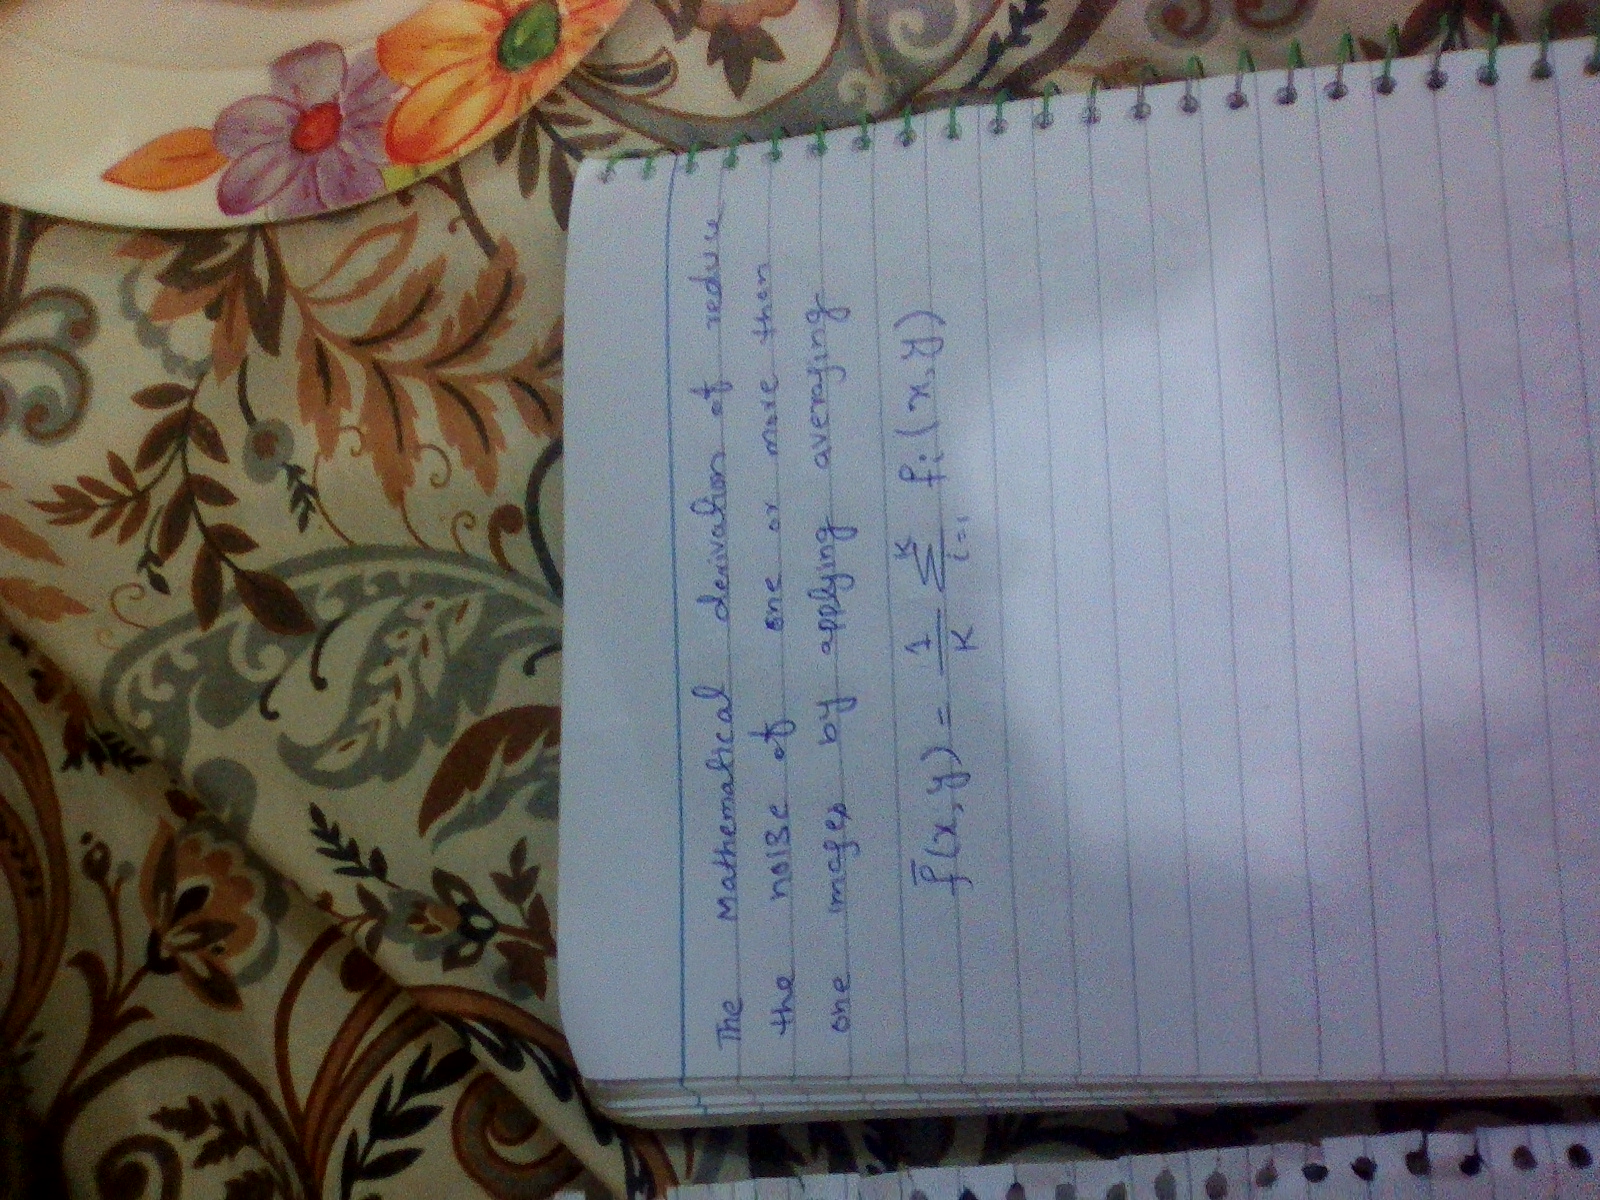 The Mathematical derivation of reduce
the noise of one or more than
one images by applying averaging
f̄(x,y) = 1/K Σ_{i=1}^{K} f_i(x,y)